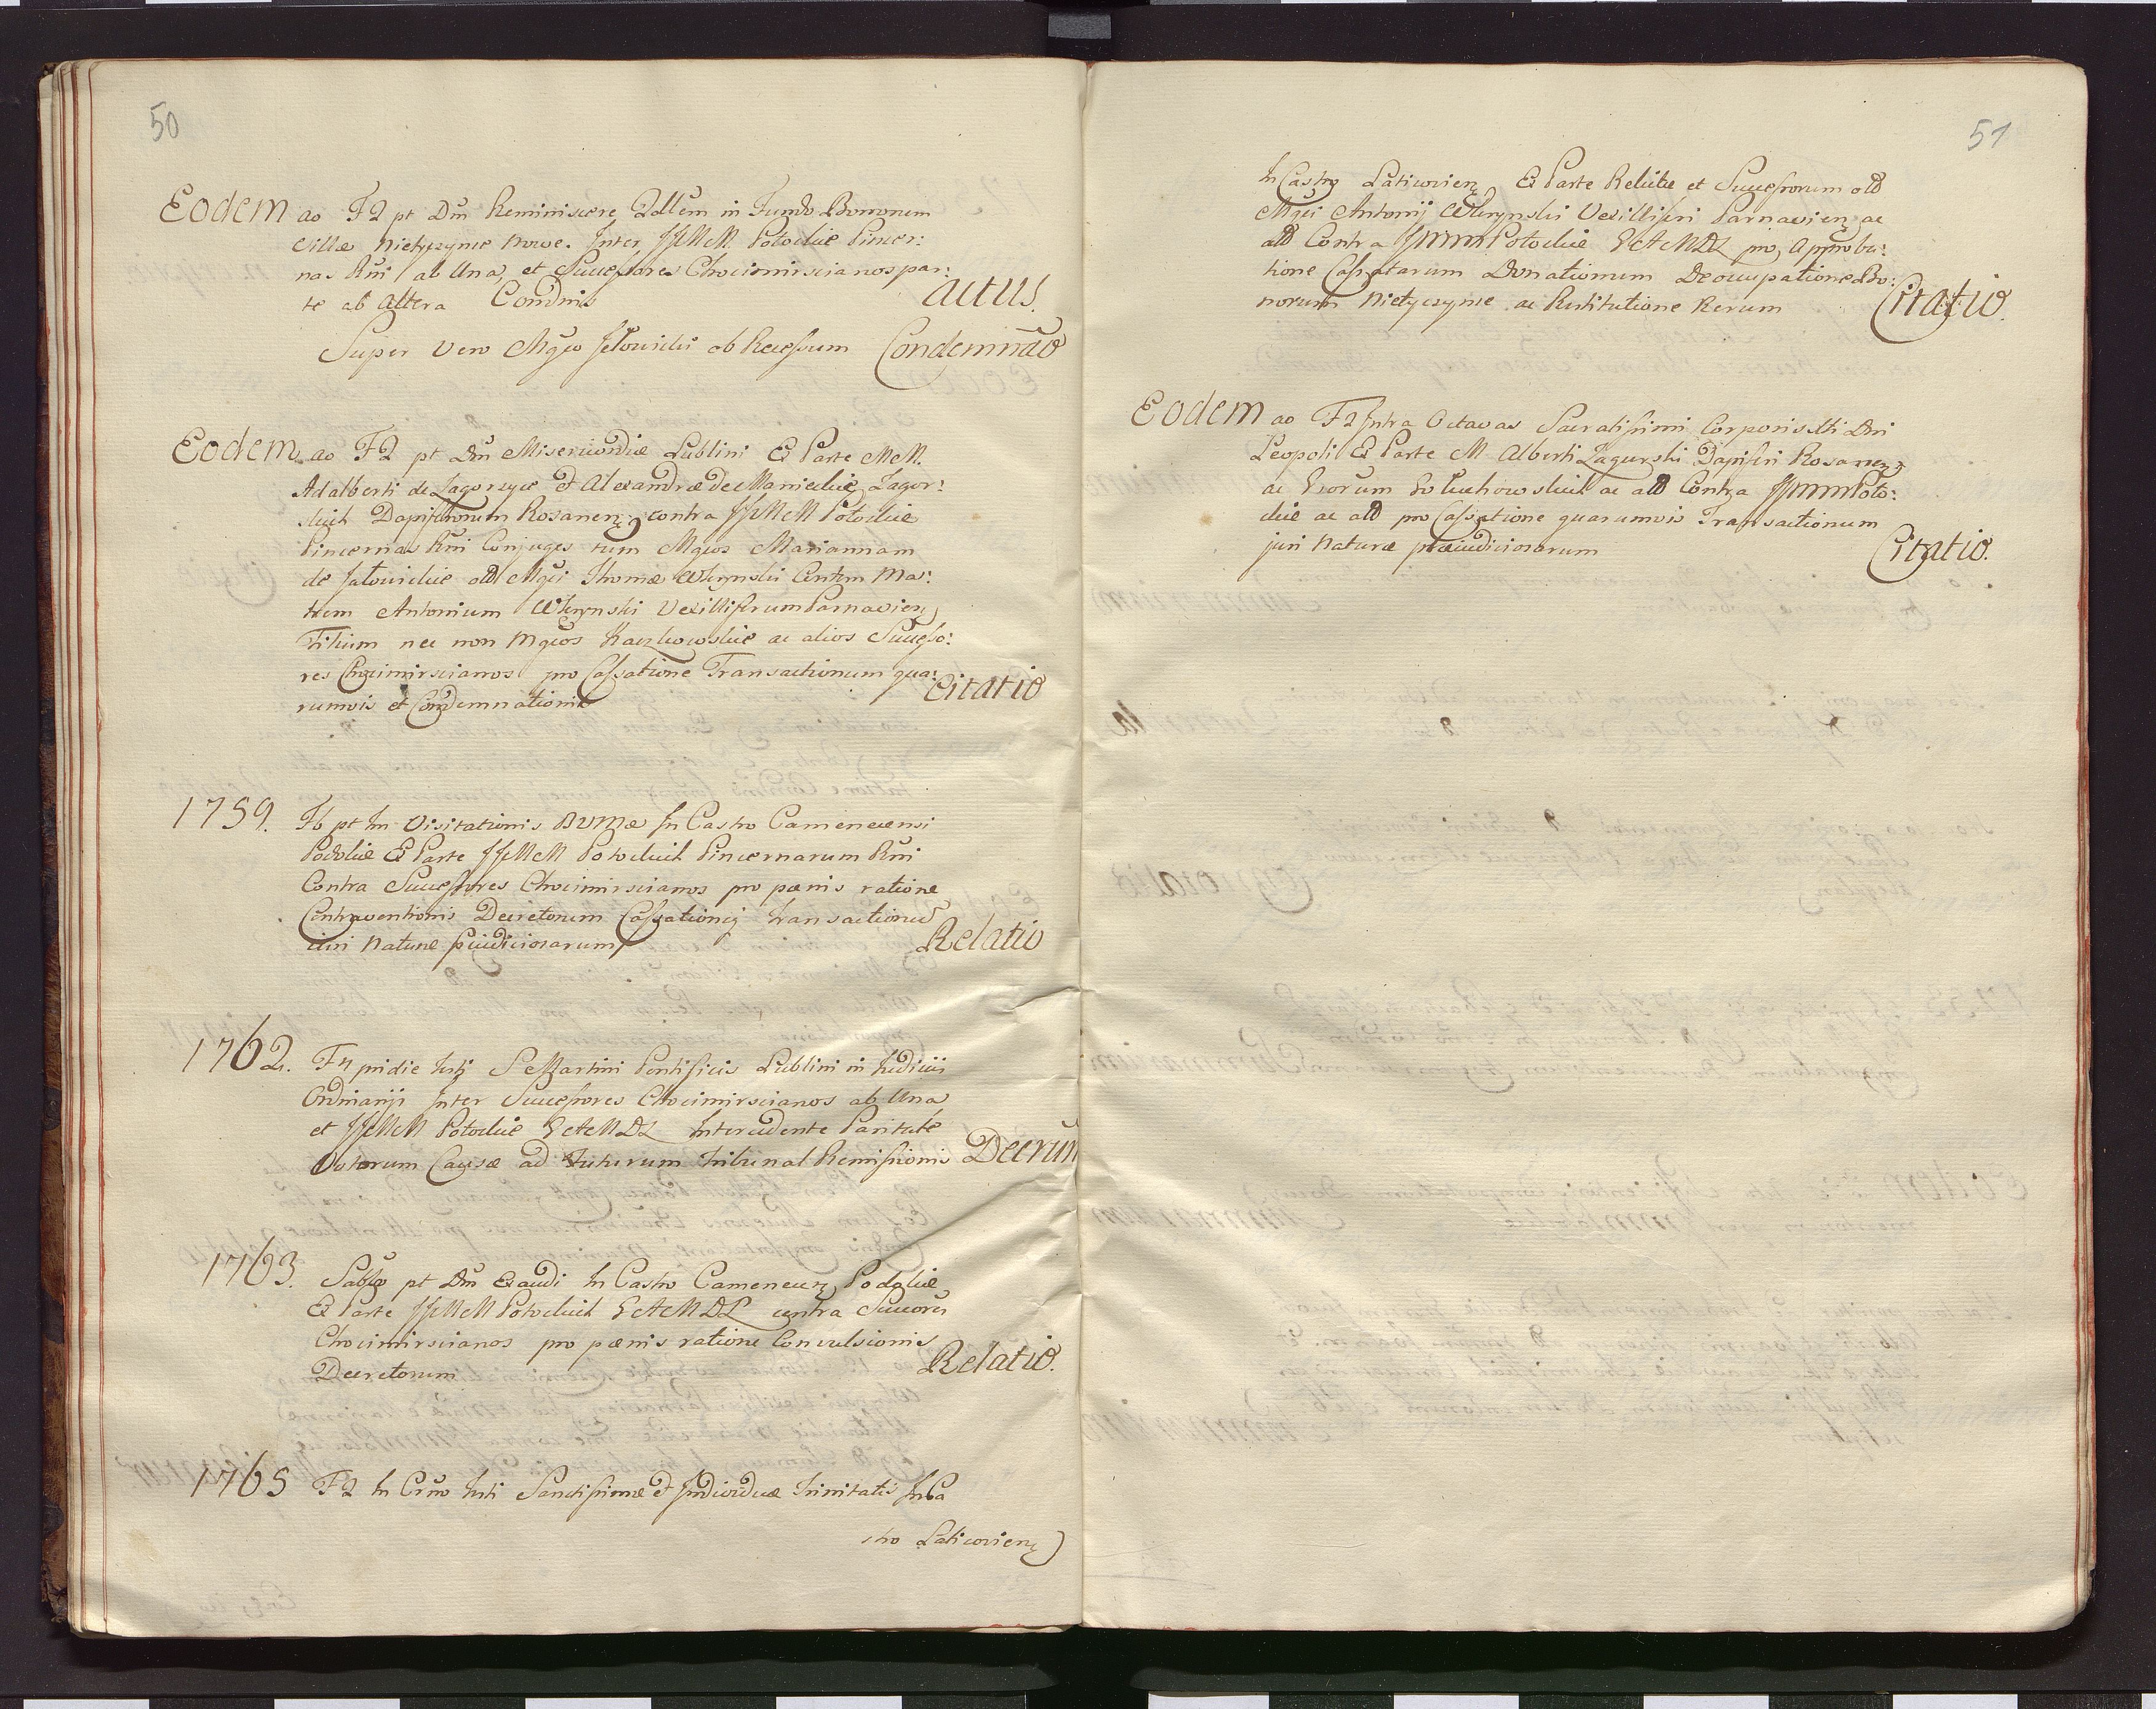 50
Eodem ao F2 pt Dm Reminiscere in Fundo Bonorum
villæ Nietyczyńce Nowe. Inter JJMMM. Potockie Pincer:
nas Rni ab Una, et Successores Chocimirscianos par:
te ab Altera Condnis Actus.
Super Vero Mgco ob Recessum Condemnao
Eodem ao F2 pt Dm Misericordiæ Lublini Ex Parte MM.
Adalberti de Zagorzyce et Alexandræ de Manieckie Zagor:
skich Dapiferorum Rosanenz contra JJMMM Potockie
Pincernas Rni Conjuges tum Mgcos Mariannam
de olb Mgci Thomæ Wkrynski Consortem Ma:
trem Antonium Wkrynski Vexilliferum Parnavienz
Filium nec non Mgcos Kaczkowskie ac alios Successo:
res Chocimirscianos pro Cassatione Transactionum qua:
rumvis et Condemnationis Citatio
1759. F6 pt fm Visitationis BVMæ In Castro Camenecensi
Podoliæ Ex Parte JJMMM Potockich Pincernarum Rni
Contra Successores Chocimirscianos pro pænis ratione
Contraventionis Decretorum Cassationis transactionum
iuri Naturæ pjudiciosarum Relatio
1762. pridie festi S Martini Pontificis Lublini in Judiciis
Ordinarijs Inter Successores Chocimirscianos ab Una
et JJMMM Potockie GAMDL Intercedente Paritate
Votorum Causæ ad Futurum Tribunal Remissionis Decrum
1763. Sabbo pt Dm Exaudi In Castro Camenecenz Podoliæ
Ex Parte JJMMM Potockich GAMDL contra Succores
Chocimirscianos pro pænis ratione Convulsionis
Decretorum Relatio.
1765 F2 In Crno festi Sanctissimæ et Individuæ Trinitatis In Ca
stro Laticovienz
51
In Castro Laticovienz Ex Parte Relictæ et Successorum olb
Mgci Antonij Wkrynski Vexilliferi Parnavienz ac
alb Contra JJmmm Potockie GAMDL pro Approba:
tione Cassatarum Donationum Deoccupatione Bo:
norum Nietyczyńce ac Restitutione Rerum Citatio.
Eodem ao F2 Intra Octavas Sacratissimi Corporis Xti Dni
Leopoli Ex Parte M Alberti Zagurski Dapiferi Rosanenz
ac Gholuchowskich ac alb Contra JJmmm Poto:
ckie ac alb pro Cassatione quarumvis Transactionum
juri Naturæ præjudiciosarum Citatio.